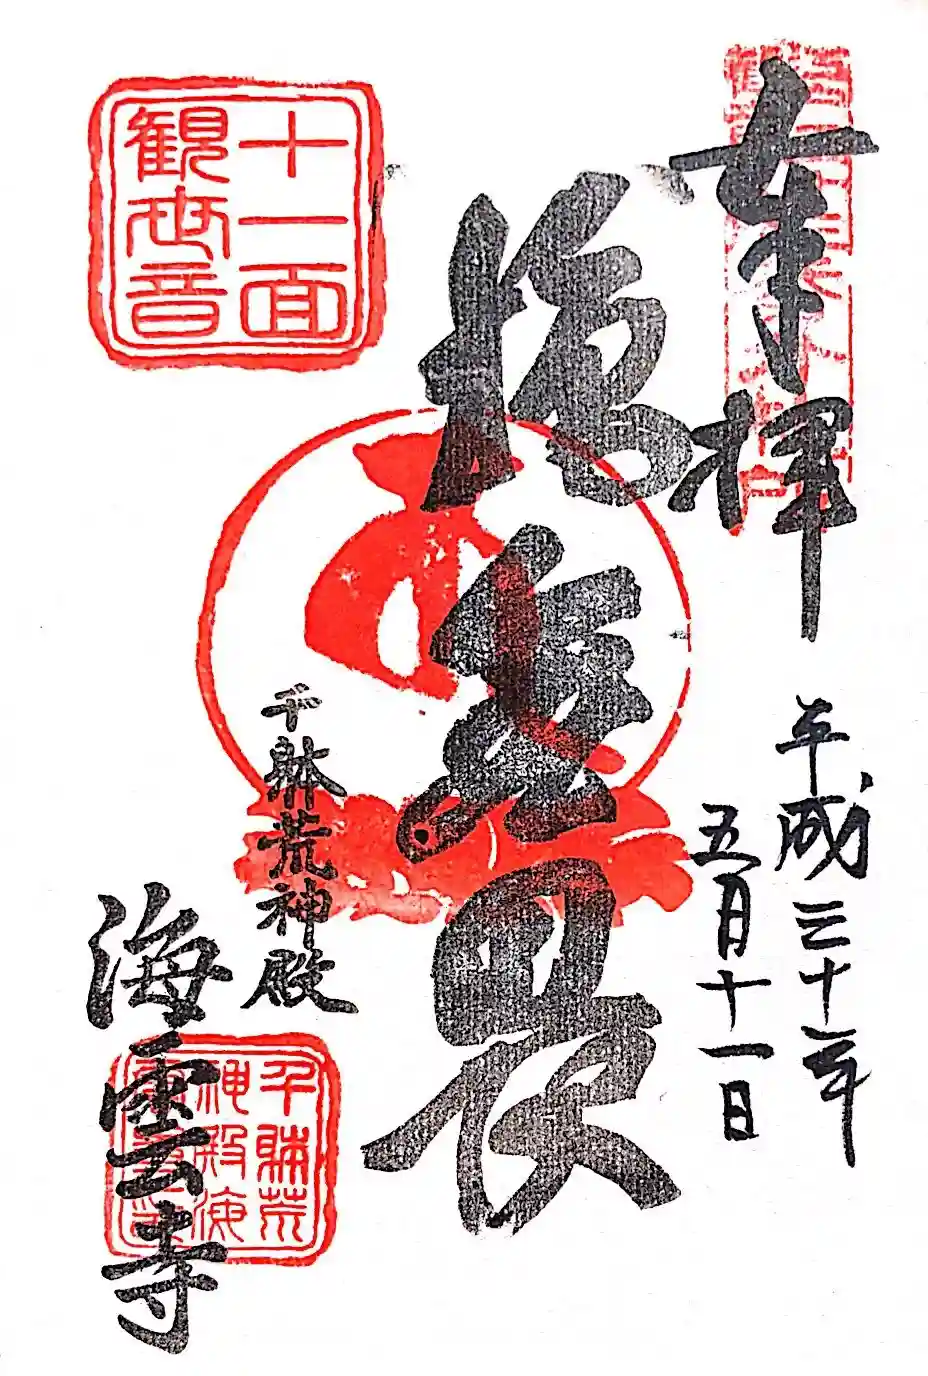 奉拝
平成三十年
五月十一日
施無畏
千躰荒神殿
海雲寺
十一面
観世音
千躰荒
神殿海